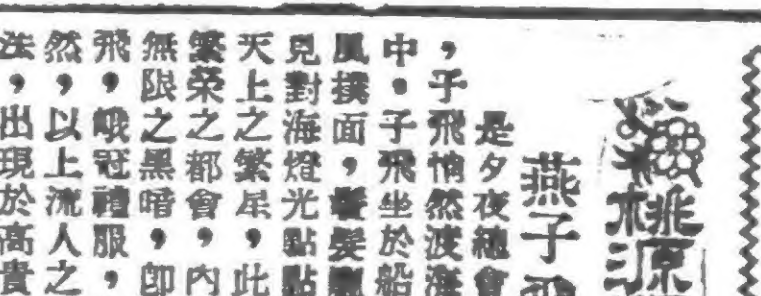 桃源
燕子
是夕夜總會
，子飛悄然渡海
中。子飛坐於船
風撲面，鬢髮飄
見對海燈光點點
天上之繁星，此
繁榮之都會，內
無限之黑暗，即
飛，峨冠禮服，
然，以上流人之
法，出現於高貴